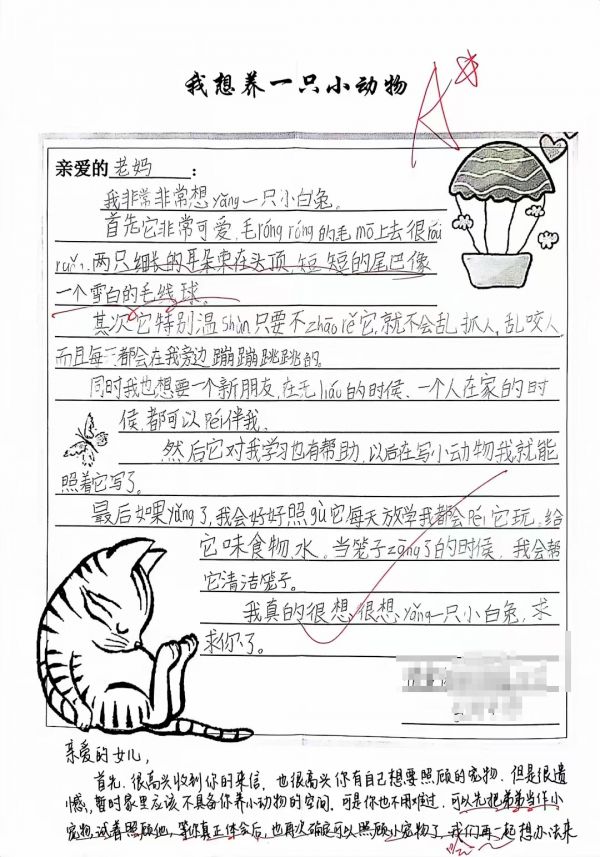 我想养一只小动物
A
亲爱的老妈：
我非常非常想yǎng一只小白兔。
首先它非常可爱，毛róng róng的毛mō上去很ruǎi
ruǎi，两只细长的耳朵束在头顶，短短的尾巴像
一个雪白的毛线球。
其次它特别温shùn只要不zhāo rě它，就不会乱抓人，乱咬人，
而且每天都会在我旁边蹦蹦跳跳的。
同时我也想要一个新朋友，在无liáo的时侯、一个人在家的时
侯，都可以péi伴我。
然后它对我学习也有帮助，以后在写小动物我就能
照着它写了。
最后如果yǎng了，我会好好照gù它每天放学我都会péi它玩，给
它味食物，水。当笼子zāng了的时侯，我会帮
它清洁笼子。
我真的很想很想yǎng一只小白兔，求
求你了。
亲爱的女儿，
首先，很高兴收到你的来信，也很高兴你有自己想要照顾的宠物。但是很遗
憾，暂时家里应该不具备你养小动物的空间。可是你也不用难过，可以先把弟弟当作小
宠物，试着照顾他，等你真正体会后，也再次确定可以照顾小宠物了，我们再一起想办法来